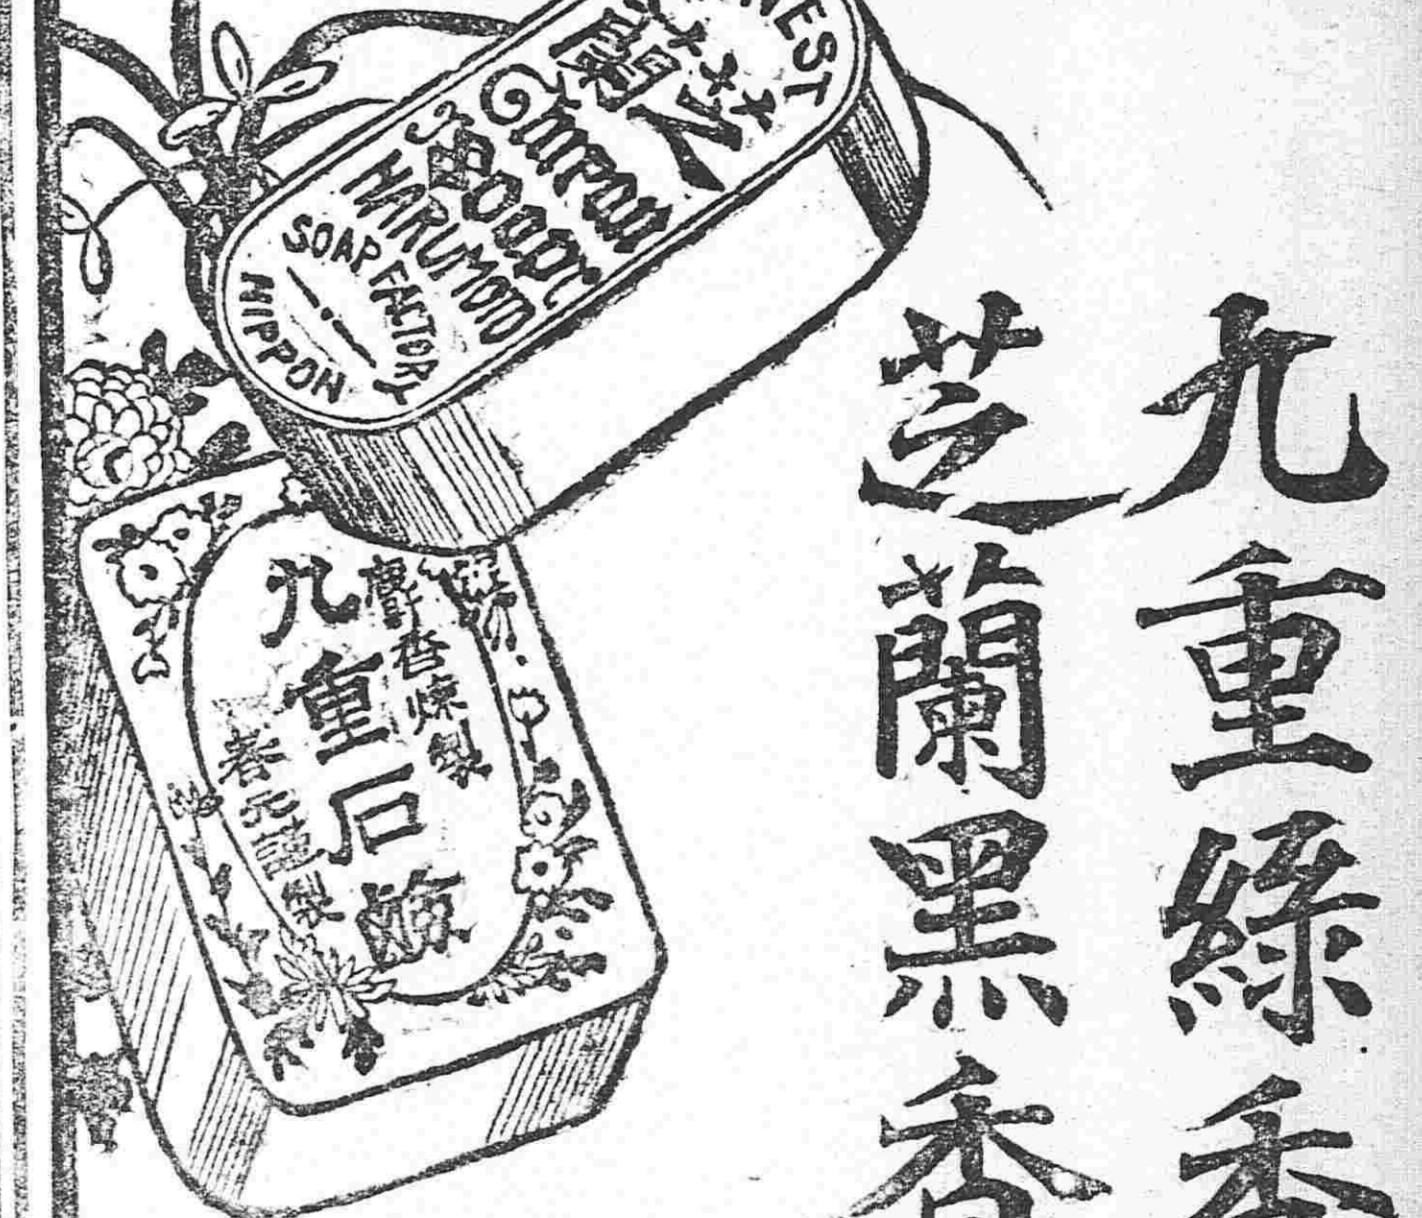 九重綠香
芝蘭黑香
芝蘭
Soap
HARUMOTO
SOAP FACTORY
NIPPON
麝香煉製
九重石鹸